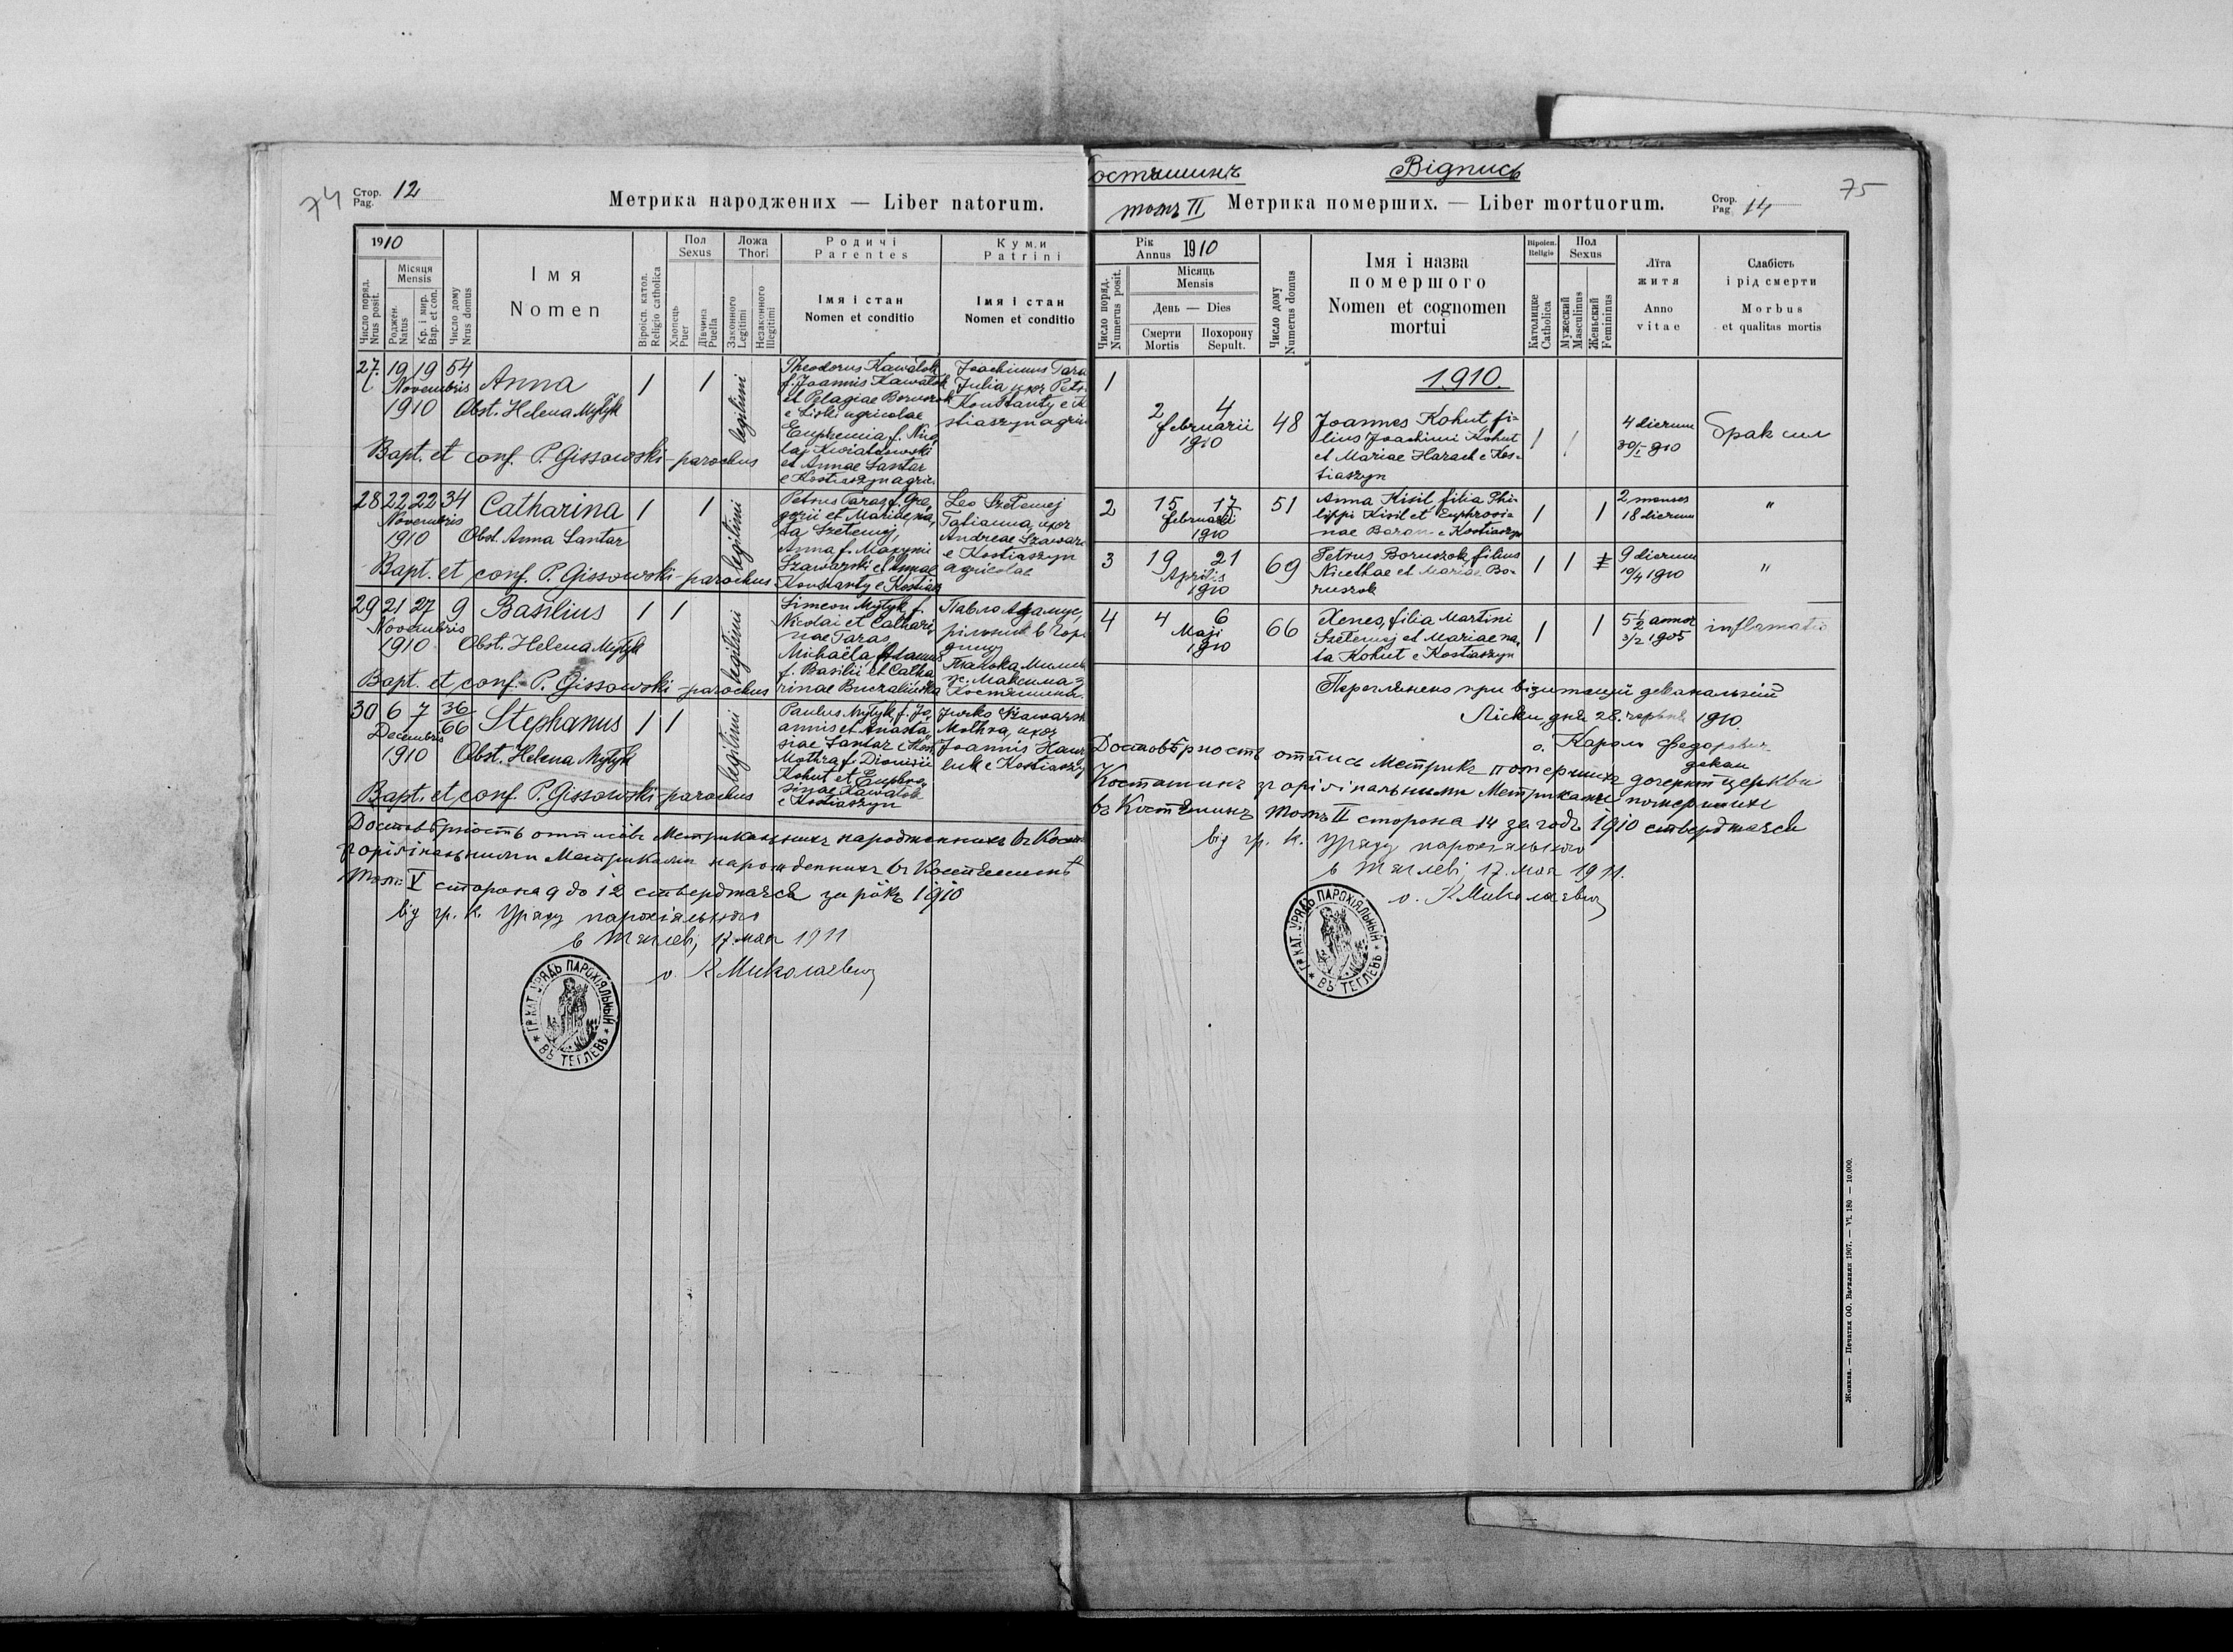 74
Стор.
Pag.
12
Метрика народжених — Liber natorum.
1910
Число поряд.
Nrus posit.
Місяця
Mensis
Роджен.
Natus
Кр. і мир.
Bap. et con.
Число дому
Nrus domus
Імя
Nomen
Віроісп. катол.
Religio catholica
Пол
Sexus
Хлопець
Puer
Дївчина
Puella
Ложа
Thori
Законного
Legitimi
Незаконного
Illegitimi
Родичі
Parentes
Імя і стан
Nomen et conditio
Куми
Patrini
Імя і стан
Nomen et conditio
27. 19 19 54
Novembris
1910
Anna
Obst. Helena Mytyk
1 1
legitimi
Theodorus Kawalok
f. Joannis Kawalok
et Pelagiae Boruszok
e Liski agricolae
Euphemia f. Nico
lai Kwiatkowski
et Annae Santar
e Kostiaszyn agric
Joachimus Tara
Julia uxor Petr
Konstanty e K
stiaszyn agric
Bapt. et conf. P. Gissowski - parochus
28 22 22 34
Novembris
1910
Catharina
Obst. Anna Santar
1 1
legitimi
Petrus Taras f. Gre
gorii et Mariae na
ta Szetemej,
Anna f. Maxymi
Szawarski et Annae
Konstanty e Kostiasz
Leo Szetemej
Tatianna, uxor
Andreae Szawars
e Kostiaszyn
agricolae
Bapt. et conf. P. Gissowski - parochus
29 21 27 9
Novembris
1910
Basilius
Obst. Helena Mytyk
1 1
legitimi
Simeon Mytyk, f.
Nicolai et Cathari
nae Taras
Michaëla Adamus
f. Basilii et Catha
rinae Buczalińska
Павло Адамус,
рільник в Горо
дищу
Bapt. et conf. P. Gissowski - parochus
30 6 7 36
66
Decembris
1910
Stephanus
Obst. Helena Mytyk
1 1
legitimi
Paulus Mytyk, f. Jo
annis et Anasta
siae Santar e Kost
Mothra f. Dionisii
Kohut et Euphro
sinae Kawalok
e Kostiaszyn
Jurko Szawarsk
Mothra, uxor
Joannis Hawr
luk e Kostiaszy
Bapt. et conf. P. Gissowski - parochus
Достовѣрность отписôвъ Метрикальныхъ народженныхъ въ Кост
з оріґінальными Метриками народженныхъ въ Костяшинѣ
Томъ V сторона 9 до 12 стверджаеся за рôкъ 1910
від гр. к. Уряду парохіяльного
в Тяглеві, 17. мая 1911
о. К Миколаевич
ГР.КАТ. УРЯДЪ ПАРОХІЯЛЬНЫЙ
ВЪ ТЕГЛЕВЪ
остяшинъ
Відпись
томъ II
Метрика померших. — Liber mortuorum.
Стор.
Pag
14
75
Рік
Annus
1910
Число поряд.
Numerus posit.
Місяць
Mensis
День — Dies
Смерти
Mortis
Похорону
Sepult.
Число дому
Numerus domus
Імя і назва
помершого
Nomen et cognomen
mortui
Віроісп.
Religio
Католицке
Catholica
Пол
Sexus
Мужеский
Masculinus
Женьский
Femininus
Лїта
житя
Anno
vitae
Слабість
і рід смерти
Morbus
et qualitas mortis
1910.
1
2 4
februarii
1910
48
Joannes Kohut, fi-
lius Joachimi Kohut
et Mariae Harach e Kos-
tiaszyn
1 1
4 dierum
30/I 910
брак сил
2
15 17
februarii
1910
51
Anna Kisil filia Phi-
lippi Kisil et Euphrosi-
nae Baran e Kostiaszyn
1 1
2 menses
18 dierum
"
3
19 21
Aprilis
1910
69
Petrus Boruszok filius
Nicethae et Mariae Bo-
ruszok
1 1
9 dierum
10/4 1910
"
4
4 6
Maji
1910
66
Xenes, filia Martini
Szetemej et Mariae na
ta Kohut e Kostiaszyn
1 1
5 1/2 annor
3/2 1905
inflamatio
Переглянено при візитациї деканальній
Ліски, дня 28. червня 1910.
о. Кароль Федорович
декан
Достовѣрность отпись Метрикъ померших дочерной церкви
Костяшинъ з оріґінальными Метриками померших
въ Костяшинѣ Томъ II сторона 14 за годъ 1910 стверджаеся
від гр. к. Уряду парохіяльного
в Тяглеві, 17. мая 1911.
о. К Миколаевич
ГР.КАТ. УРЯДЪ ПАРОХІЯЛЬНЫЙ
ВЪ ТЕГЛЕВЪ
Жовква. — Печатня ОО. Василиян 1907. — VI. 180 — 10.000.